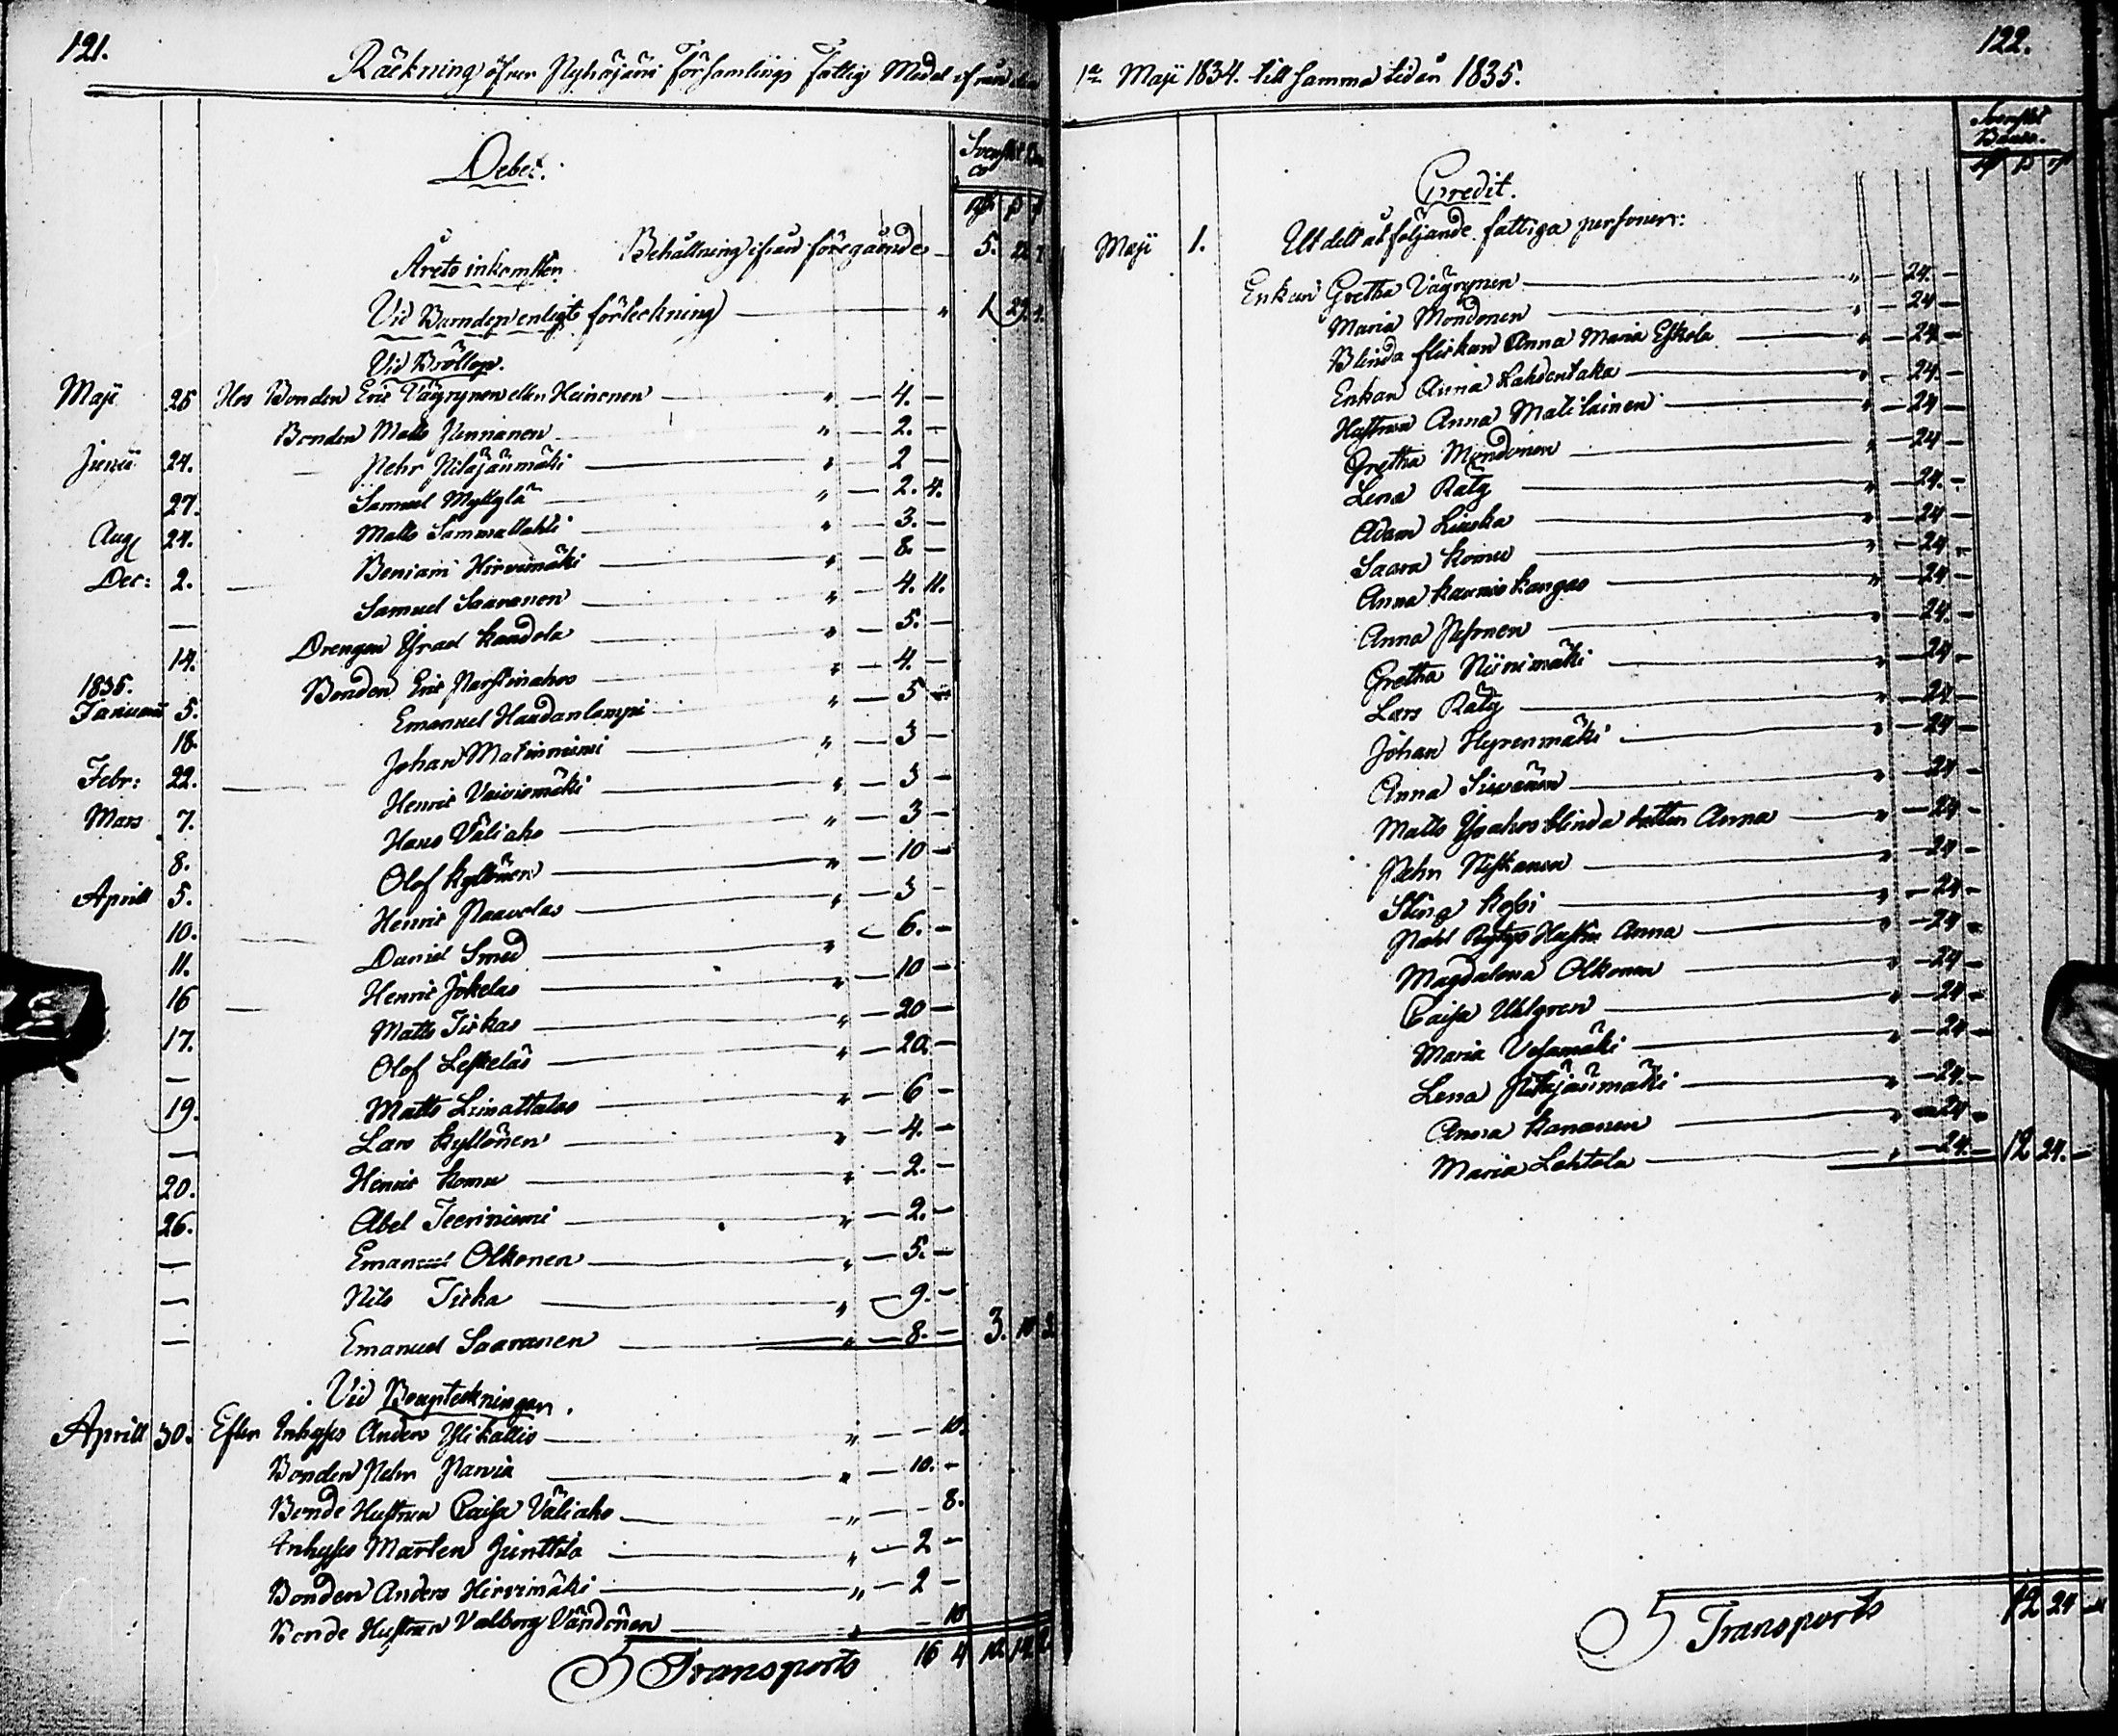 121.
Räckning öfver Pyhäjärvi Församlings Fattig Medel ifrån den
Debet.
Svenskt Banco
Behållning ifrån föregående — 5.
Årets inkomster.
Vid Barndop enligt förteckning — " 1 29. 4.
Vid Bröllop.
Maji 25 Hos Bonden Eric Vägrynen eller Heinonen — " — 4. —
Bonden Matts Pennanen — " — 2. —
Junii 24. Pehr Pitäjänmäki — " — 2 —
27. Samuel Myllylä — " — 2. 4.
Aug 24. Matts Sammallahti — " — 3. —
Dec: 2. Beniam Hirvimäki — " — 8. —
— Samuel Saaranen — " — 4. 11.
14. Drengen Israel Kandola — " — 5. —
1835. Bonden Eric Parstinahos — " — 4. —
Januari 5. Emanuel Haudanlampi — " — 5 —
18. Johan Matinniemi — " — 3 —
Febr: 22. Henric Vaivismäki — " — 3 —
Mars 7. Hans Väliaho — " — 3 —
8. Olof Kyllönen — " — 10 —
Aprill 5. Henric Paavolas — " — 3 —
10. Daniel Smed — " 6. —
11. Henric Jokelas — " — 10 —
16 Matts Tickas — " — 20 —
17. Olof Leskeläs — " — 20. —
— Matts Liinattalas — " — 6 —
19. Lars Kyllönen — " — 4. —
— Henric Komu — " — 2. —
20. Abel Teeriniemi — " — 2. —
26. Emanuel Olkonen — " — 5. —
— Nils Ticka — " — 9. —
— Emanuel Saaranen — " — 8. — 3.
Vid Bouptekningar.
Aprill 30. Efter Inhyses Anders Ylikallio — " — — 10.
Bonden Pehr Parvia — " — 10. —
Bonde Hustrun Caisa Väliaho — " — — 8.
Inhyses Mårten Junttila — " — 2 —
Bonden Anders Hirvimäki — " — 2 —
Bonde Hustrun Valborg Vändönen — " — — 10
Transports 16 4
122.
1a Maji 1834. till samma tid år 1835.
Credit.
Svenskt
Banco.
Maji 1. Utdelt åt följande fattiga personer:
Enkan Gretha Vägrynen — " — 24. —
Maria Möndönen — " — 24 —
Blinda flickan Anna Maria Eskola — " — 24 —
Enkan Anna Lahdentaka — " — 24. —
Hustrun Anna Matilainen — " — 24 —
Gretha Möndönen — " — 24 —
Lena Räty — " — 24. —
Adam Liuska — " — 24 —
Saara Komu — " — 24 —
Anna Kaunis kangas — " — 24 —
Anna Pesonen — " — 24. —
Gretha Niinimäki — " — 24 —
Lars Räty — " — 24 —
Johan Hyvenmäki — " — 24 —
Anna Siwänen — " — 24 —
Matts Ypahos blinda dotter Anna — " — 24 —
Pehr Niskanen — " — 24 —
Stina Kossi — " — 24 —
Pahl Rytys Hustru Anna — " — 24 —
Magdalena Olkonen — " — 24 —
Caisa Uhlgren — " — 24 —
Maria Vesamäki — " — 24 —
Lena Pitäjänmäki — " — 24. —
Anna Kananen — " — 24 —
Maria Lehtola — " — 24. — 12 24. —
Transports 12 24 —